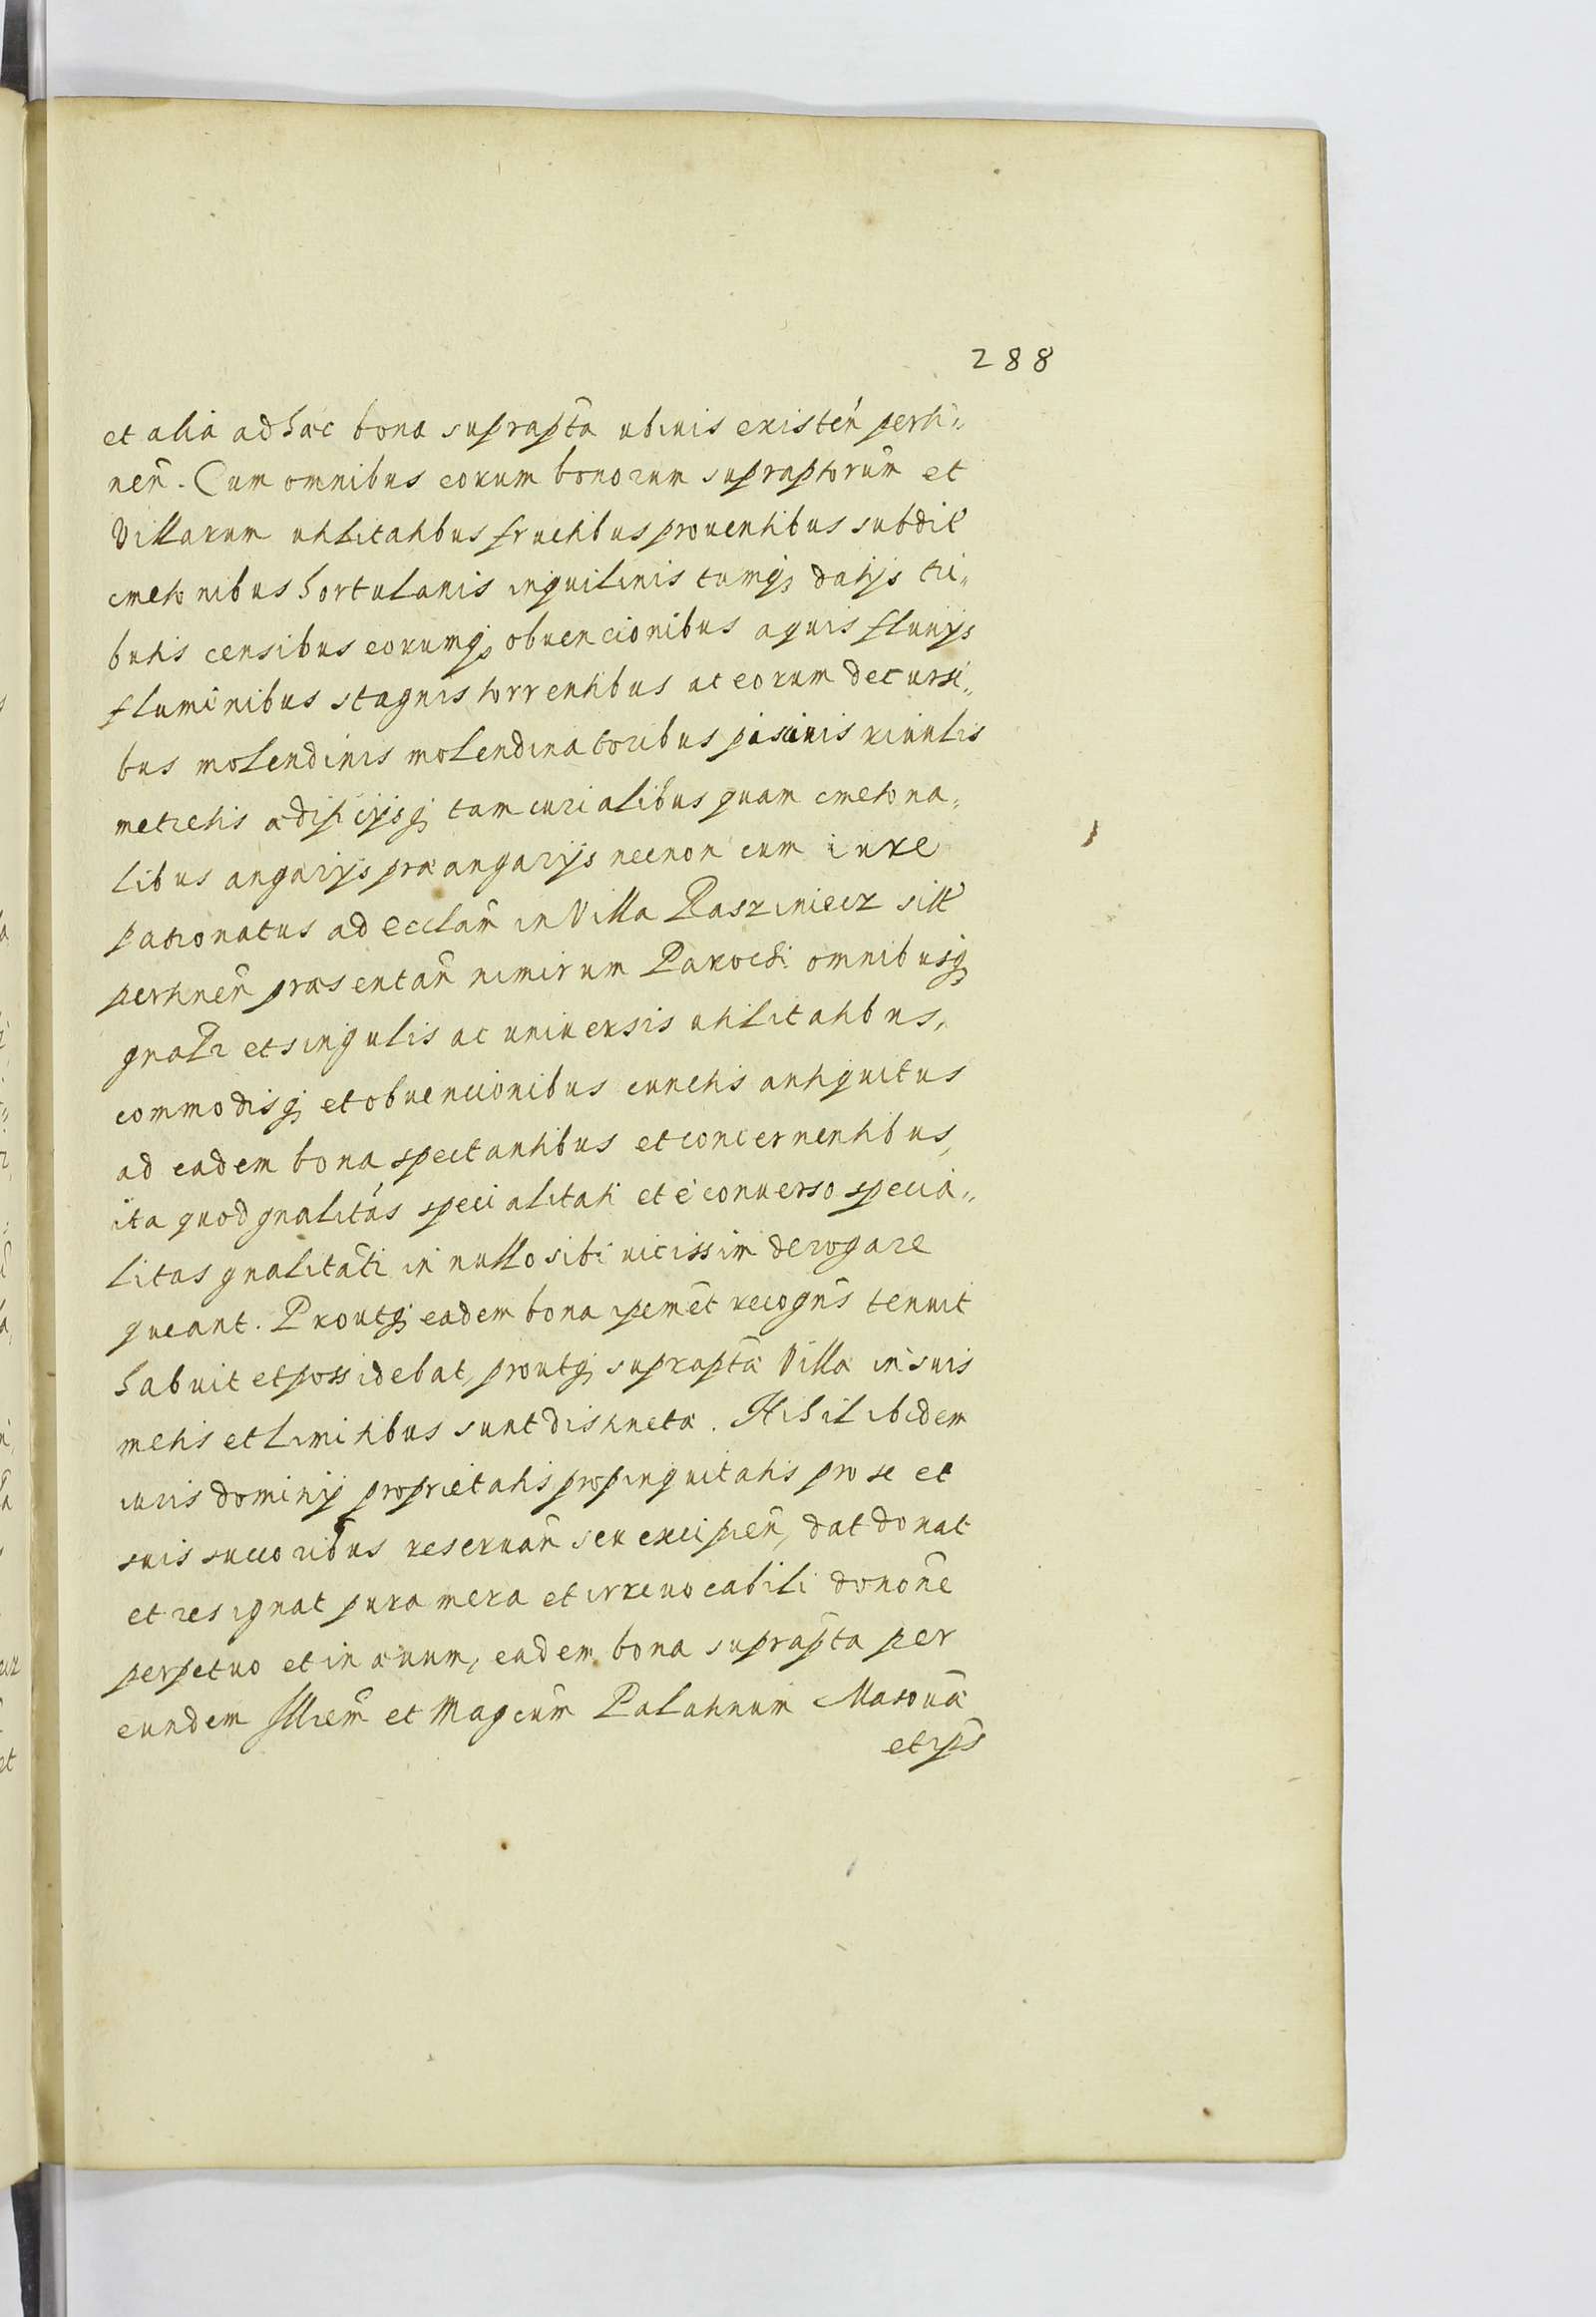 288
et alia ad hæc bona suprapta ubiuis existen̄ perti„
nen̄. Cum omnibus eorum bonorum supraptorum̄ et
Villarum utilitatibus fructibus prouentibus subdit̄
cmetonibus hortulanis inquilinis eorumq; datijs tri„
butis censibus eorumq; obuencionibus aquis fluuijs
fluminibus stagnis torrentibus ac eorum decursi„
bus molendinis molendinatoribus piscinis riuulis
metretis ædificijsq; tam curialibus quam cmetona„
libus angarijs præangarijs necnon cum iure
patronatus ad eccłam̄ in Villa Rasziniecz sitt̄
pertinen̄ præsentan̄ nimirum Parochi omnibusq;
gnałr et singulis ac uniuersis utilitatibus,
commodisq; et obuencionibus cunctis antiquitus
ad eadem bona spectantibus et concernentibus,
ita quod gnalitas specialitati et e conuerso specia„
litas gnalitati in nullo sibi uicissim derogare
queant. Proutq; eadem bona ipemet̄ recogn̄s tenuit
habuit et possidebat, proutq; suprapta Villa in suis
metis et limitibus sunt distincta. Nihil ibidem
iuris dominij proprietatis propinquitatis pro se et
suis succoribus reseruan̄ seu excipien̄, dat donat
et resignat pura mera et irreuocabili donōne
perpetuo et in æuum, eadem bona suprapta per
eundem Illrem̄ et Magcum̄ Palatinum Masouiæ
et ip̄s